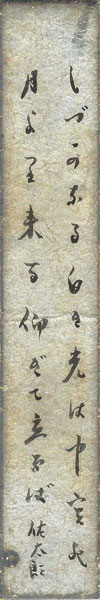 しづかなる白き光は中空の
月より来る仰ぎて立てば 佐太郎